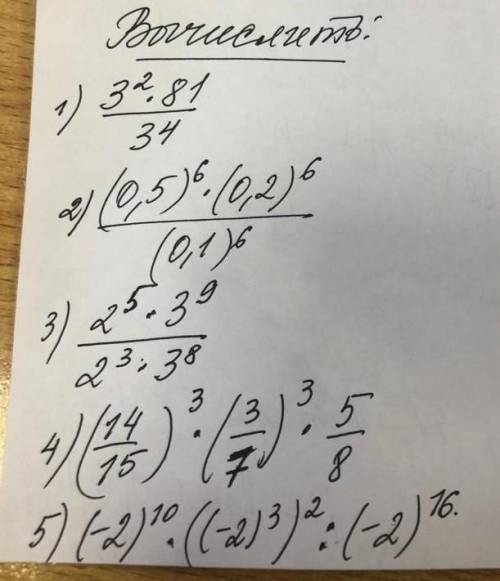 Вычислить:
1) (3² · 81) / 34
2) ((0,5)⁶ · (0,2)⁶) / (0,1)⁶
3) (2⁵ · 3⁹) / (2³ · 3⁸)
4) (14/15)³ · (3/7)³ · 5/8
5) (-2)¹⁰ · ((-2)³)² : (-2)¹⁶.